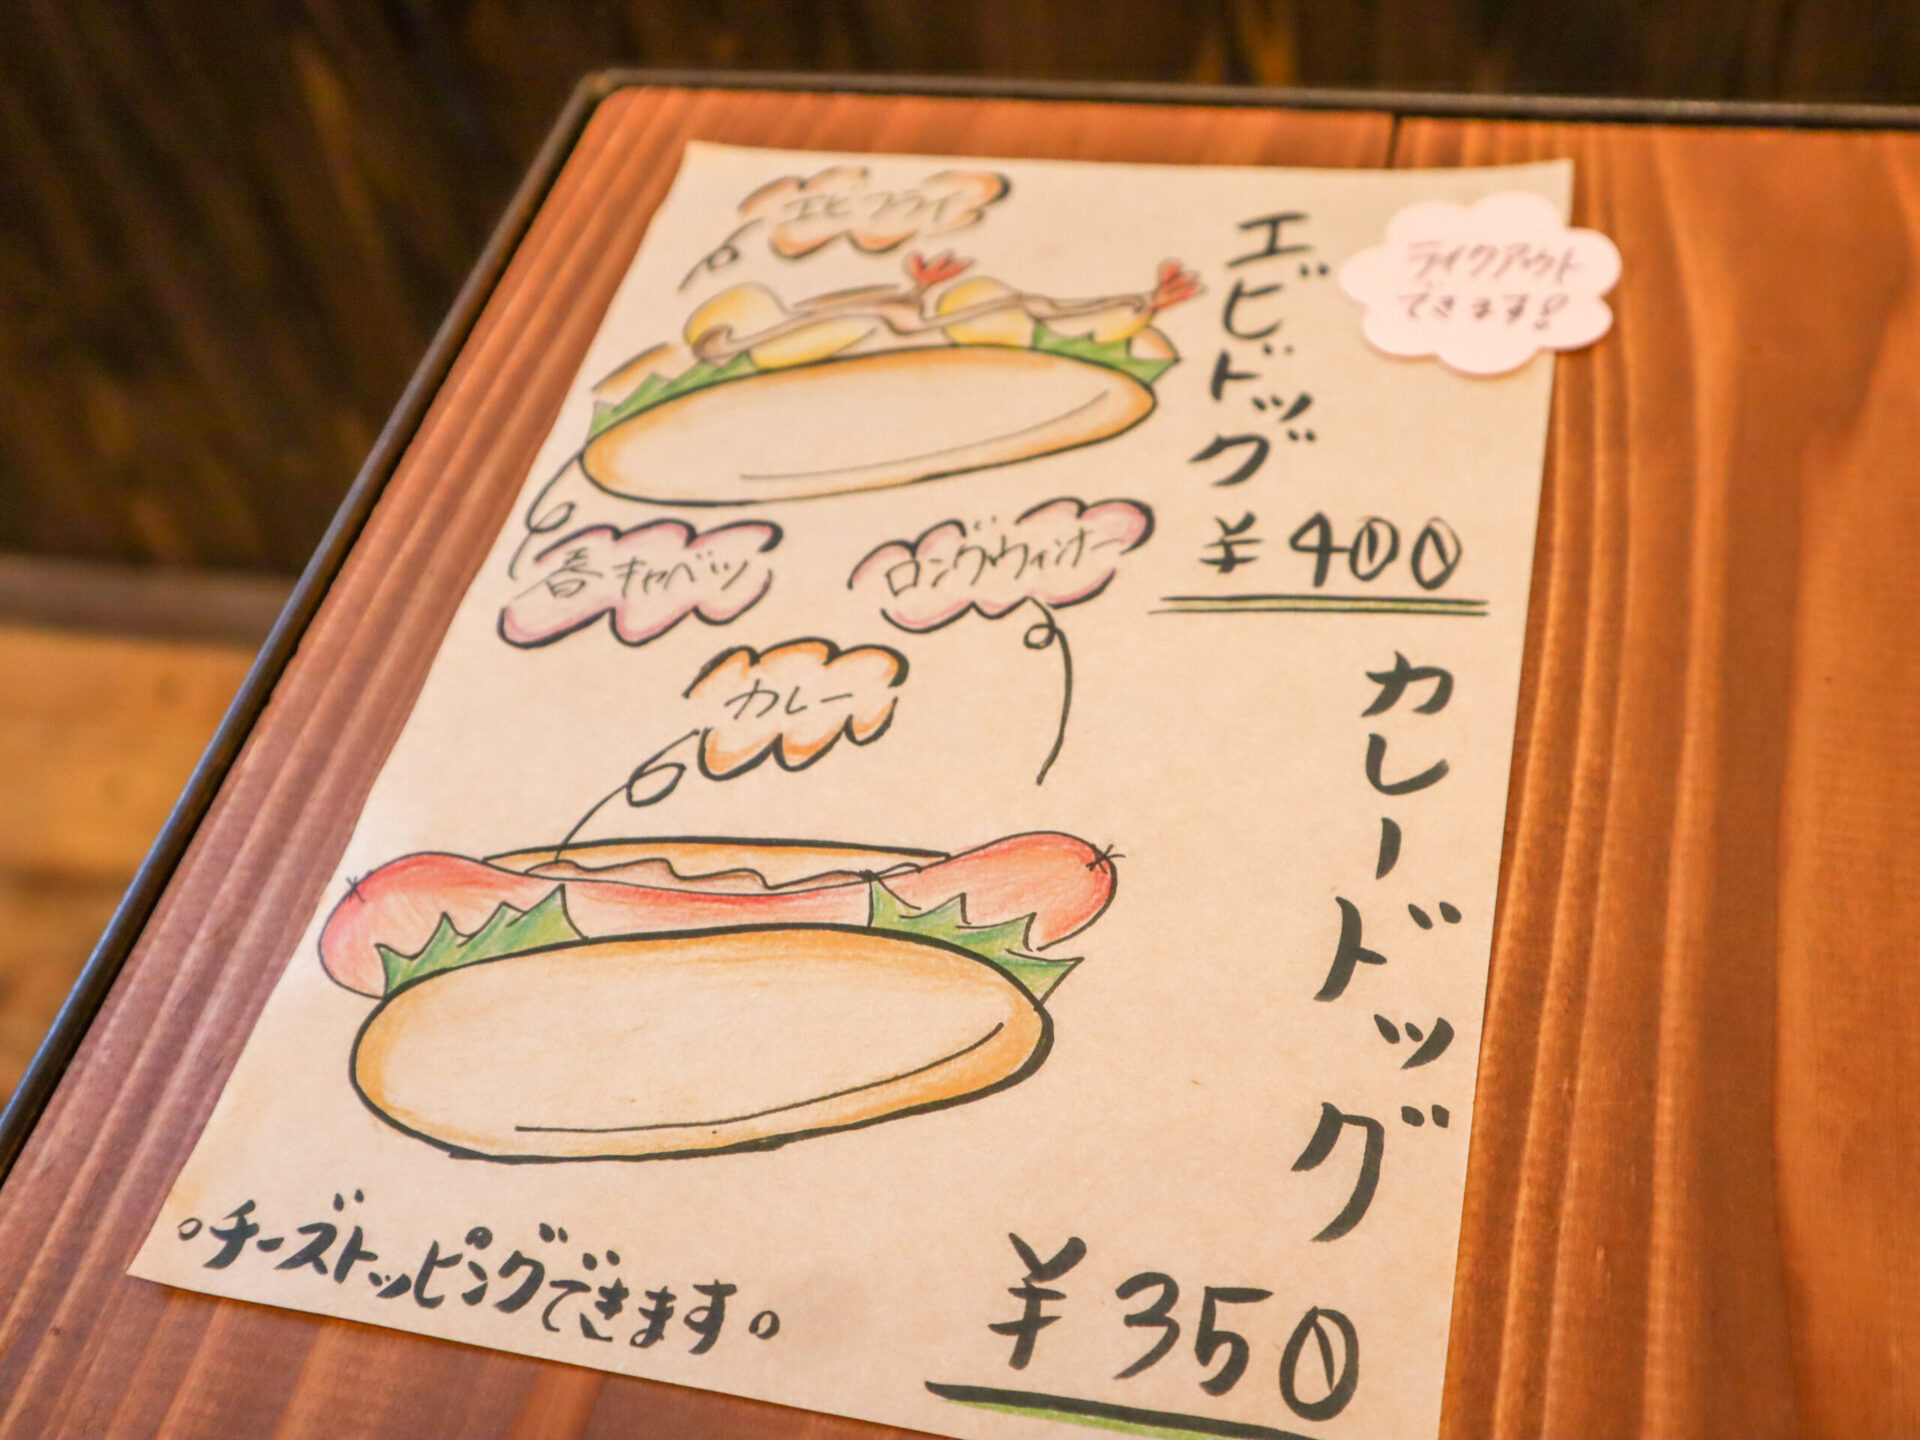 エビフライ
エビドッグ
¥400
テイクアウト
できます!
春キャベツ
ロングウィンナー
カレー
カレードッグ
¥350
。チーズトッピングできます。